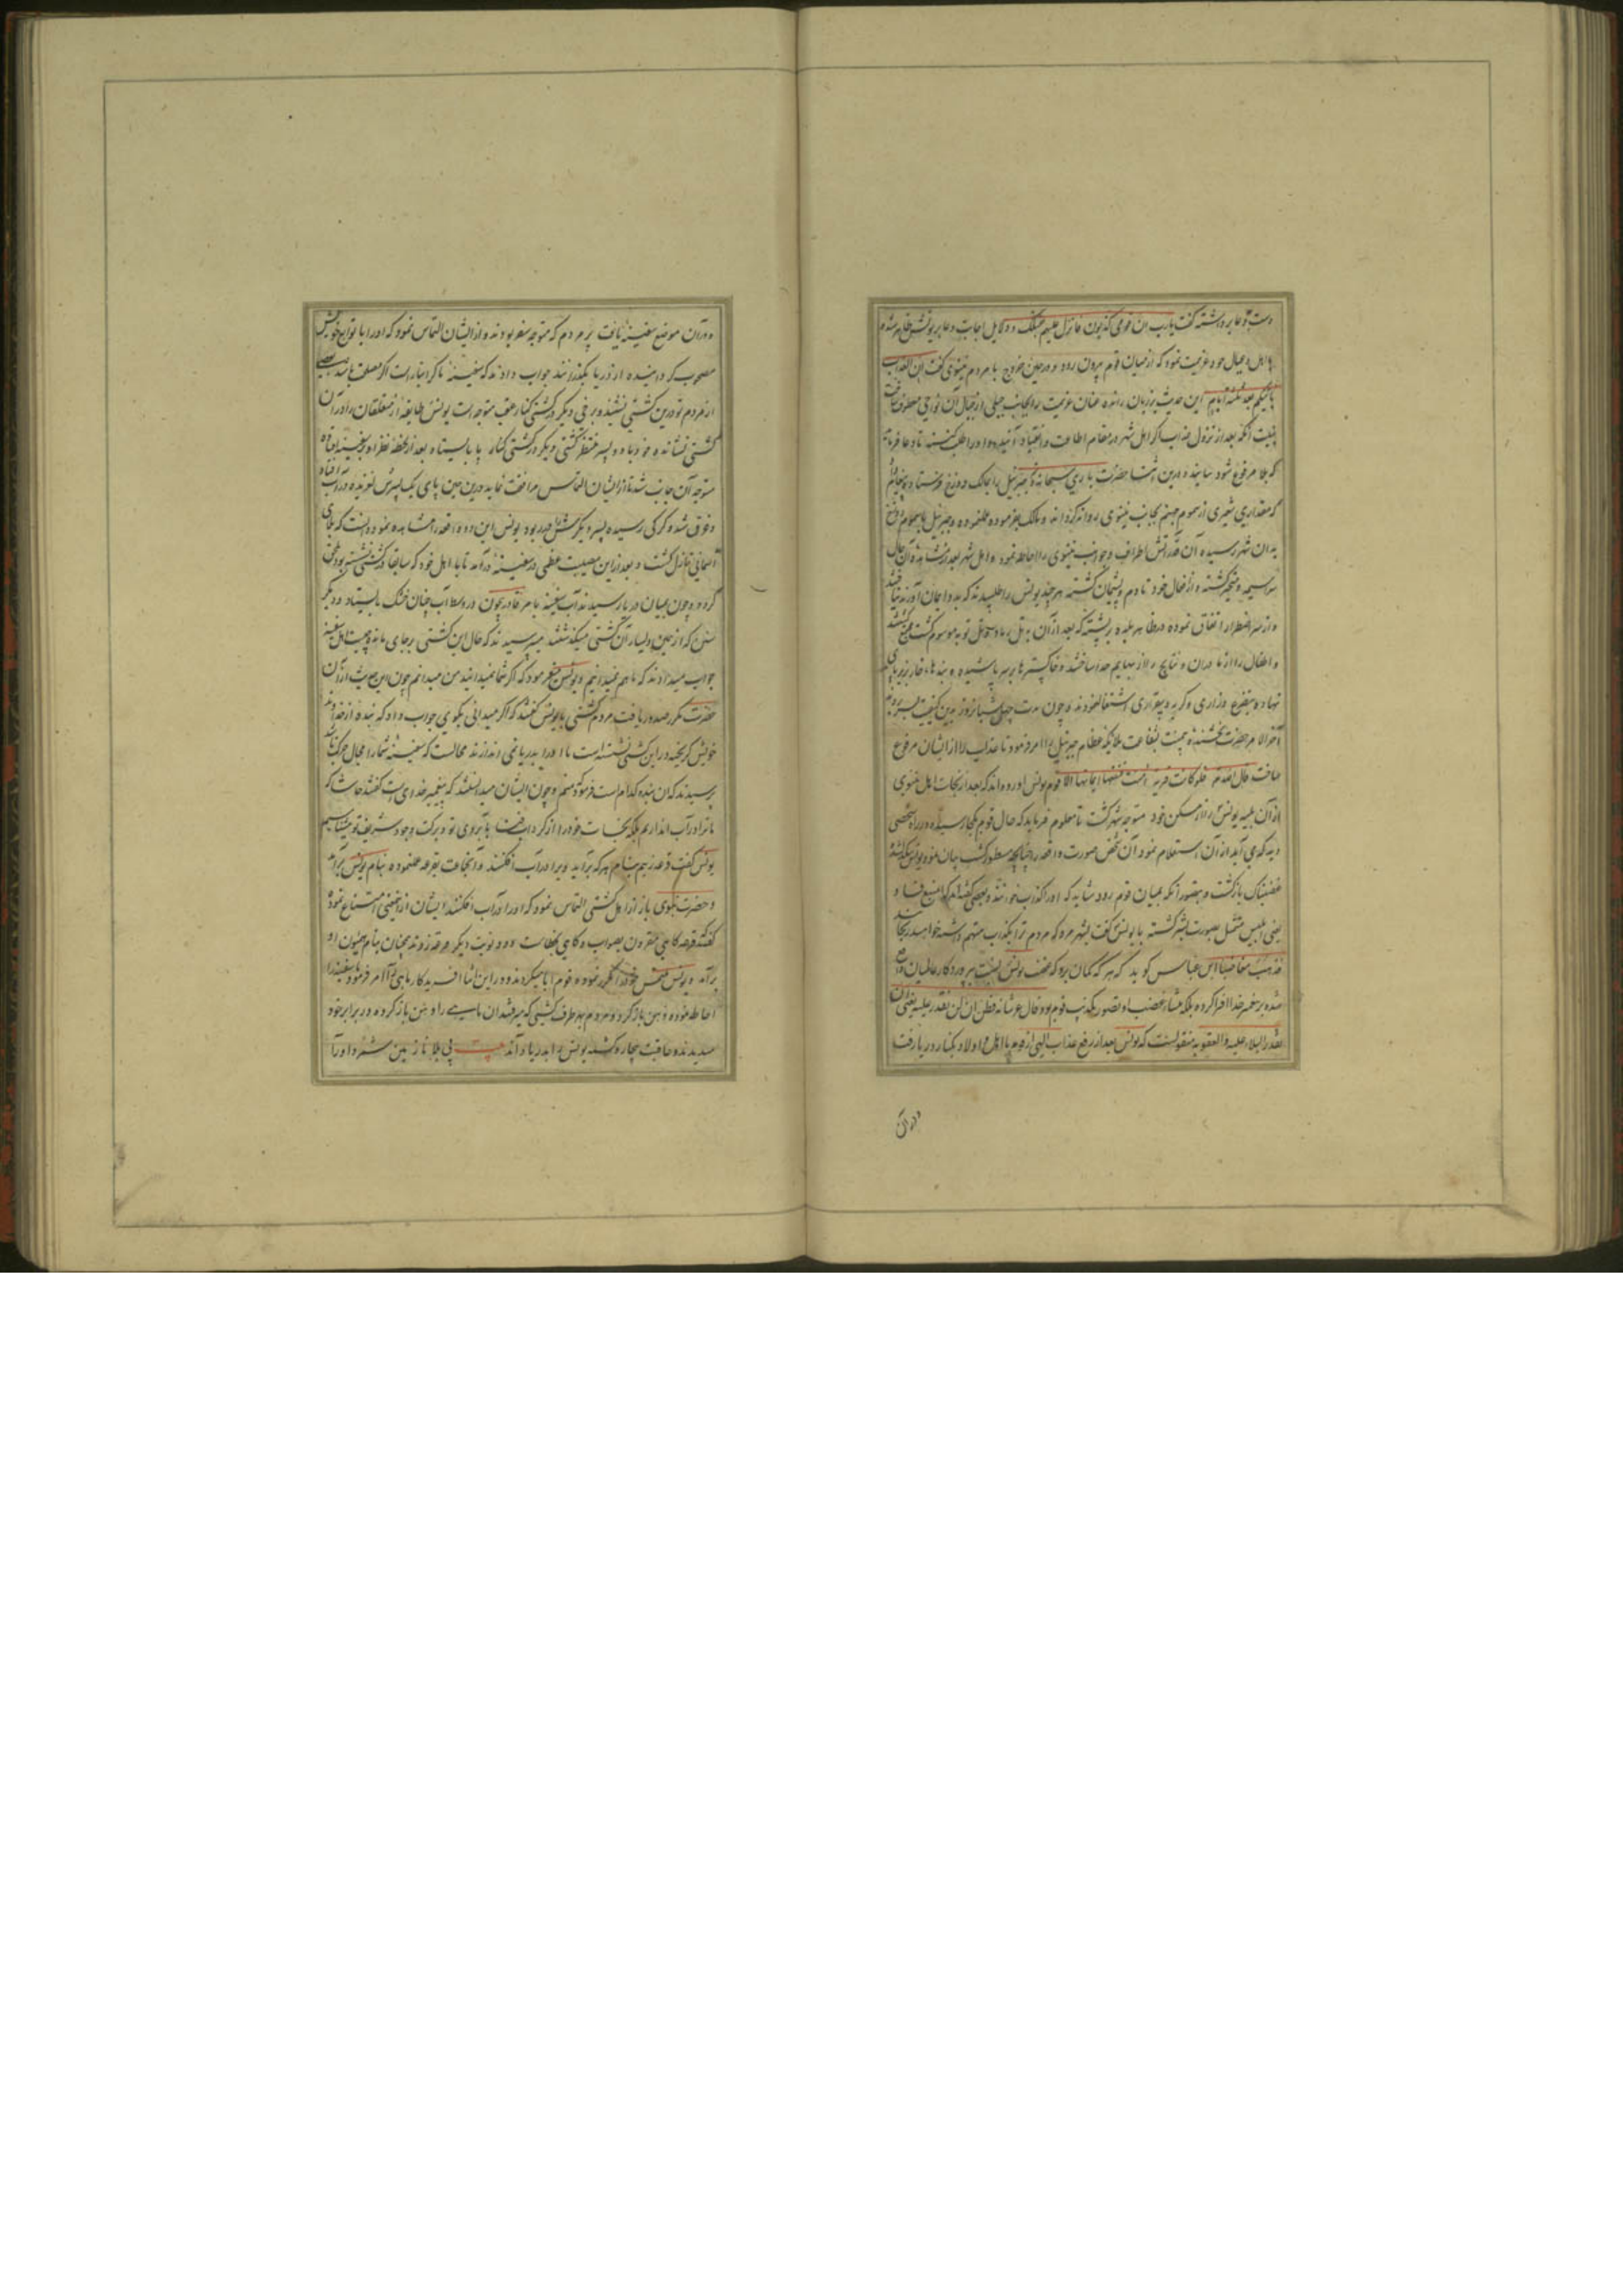 دست دعا برداشته گفت یارب ان قومی کذبون فانزل علیهم و دلایل اجابت دعا بر یونس ظاهر شده
با اهل و عیال خود عزیمت نمود که از میان قوم بیرون رود و در حین خروج با مردم نینوی گفت ان العذاب
یاتیکم بعد ثلثه ایام این حدیث بر زبان رانده عنان عزیمت بجانب جبلی از جبال آن نواحی معطوف ساخت
به نیت آنکه بعد از نزول عذاب اگر اهل شهر در مقام اطاعت و انقیاد آیند و او را طلب کنند تا دعا فرماید
که بلا مرفوع شود بیاید و درین اثنا حضرت باری سبحانه و جبرئیل را بمالک دوزخ فرستاد و پیغام
که مقداری شعیری از سموم جهنم بجانب نینوی روانه گرداند و مالک بفرموده عمل نموده و جبرئیل با سموم دوزخ
بدان شهر رسیده آن آتش اطراف و جوانب نینوی را احاطه نمود و اهل شهر بعد از مشاهده آن حال
سراسیمه و متحیر گشته و از افعال خود نادم و پشیمان گشته هر چند یونس را طلبیدند که بدو ایمان آورند نیافتند
و از سر اضطرار اتفاق نموده در ظاهر بلده بر پشته که بعد از آن به تل رماد و تل توبه موسوم گشت جمع گشتند
و اطفال را از مادران و نتایج را از بهایم جدا ساختند و خاکسترها بر سر پاشیده و بندها خار بزیر پای
نهاده بتضرع و زاری و گریه و بیقراری اشتغال نمودند و چون مدت چهل شبانروز بدین کیفیت بسر بردند
آخر الامر حضرت بخشنده بی منت بشفاعت ملائکه عظام جبرئیل را امر فرمود تا عذاب را از ایشان مرفوع
ساخت قال الله تعالی فلولا کانت قریة آمنت فنفعها ایمانها الا قوم یونس آورده‌اند که بعد از نجات اهل نینوی
از آن بلیه یونس از مسکن خود متوجه شهر گشت تا معلوم فرماید که حال قوم بکجا رسیده و در راه شخصی
دید که می‌آید از آن استعلام نمود آن شخص صورت واقعه را چنانچه مسطور گشت بیان نمود یونس
غضبناک بازگشت و بتصور آنکه بمیان قوم رود شاید که او را کذاب خوانند و بعضی گفته‌اند که
یعنی ابلیس متمثل بصورت بشر گشته با یونس گفت بشهر مرو که مردم ترا بکذب متهم داشته خواهند رنجانید
فذهب مغاضبا ابن عباس گوید که هر که گمان برد که یونس نسبت به پروردگار عالمیان واقع
شده بر پیغمبر خدا افترا کرده بلکه منشا غضب او تصور تکذیب قوم بود و قال عز شانه فظن ان لن نقدر علیه یعنی لن
نقدر البلاء علیه و العقوبه منقولست که یونس بعد از رفع عذاب الهی از قوم با اهل و اولاد بکنار دریا رفت
در آن
و در آن موضع سفینه یافت پر مردم که متوجه سفر بودند و از ایشان التماس نمود که او را با توابع خویش
مصحوب گردانیده از دریا بگذرانند جواب دادند که سفینه ما گرانبار است اگر مصلحت باشد بعضی
از مردم تو درین کشتی نشینند و برخی دیگر در کشتی که از عقب متوجه است یونس طایفه از متعلقان را در آن
کشتی نشانده و خود با دو پسر منتظر کشتی دیگر در کنار دریا بایستاد بعد از لحظه نظر او بر سفینه افتاده
متوجه آن جانب شد تا از ایشان التماس مرافقت نماید درین حین پای یک پسرش لغزیده در آب افتاد
و غرق شد و گرگی رسیده پسر دیگرش را در ربود یونس این دو واقعه را مشاهده نموده دانست که بلای
آسمانی نازل گشت و بعد از این مصیبت عظمی در سفینه درآمد تا با اهل خود که سابقا در کشتی نشسته بود ملحق
گردد و چون بمیان دریا رسیدند آب سفینه بامر قادر بیچون در وسط آب چنان خشک بایستاد و دیگر
سفن که از یمین و یسار آن کشتی میگذشتند میپرسیدند که حال این کشتی بر جای مانده چیست اهل سفینه
جواب میدادند که ما هم نمیدانیم و یونس میفرمود که اگر شما نمیدانید من میدانم چون این حدیث از آن
حضرت مکرر صدور یافت مردم کشتی با یونس گفتند که اگر میدانی بگوی جواب داد که بنده از خداوند
خویش گریخته در این کشتی نشسته است تا او را بدریا نمی‌اندازند محالست که سفینه شما را مجال حرکت باشد
پرسیدند که آن بنده کدام است فرمود که منم و چون ایشان میدانستند که پیغمبر خدای است گفتند حاشا که
ما ترا در آب اندازیم بلکه نجات خود را از گرداب بآبروی تو و برکت وجود شریف تو میشناسیم
یونس گفت قرعه زنیم بنام هر که برآید ویرا در آب افکنند و آنجماعت بقرعه عمل نموده بنام یونس برآمد
و حضرت نبوی باز از اهل کشتی التماس نمود که او را در آب افکنند ایشان از آنمعنی امتناع نموده
گفتند قرعه گاهی مقرون بصواب و گاهی بخطاست و دو نوبت دیگر قرعه زدند همچنان بنام همیون او
برآمد و یونس ملتمس خود را مکرر نموده قوم ابا میکردند و در این اثنا آفریدگار ماهی را امر فرمود تا سفینه را
احاطه نموده دهن باز کرد و مردم بهر طرف کشتی که میرفتند آن ماهی را دهن باز کرده در برابر خود
میدیدند و عاقبت بیچاره گشته یونس را بدریا دادند بیت پی بلا نازنین شمرد او را